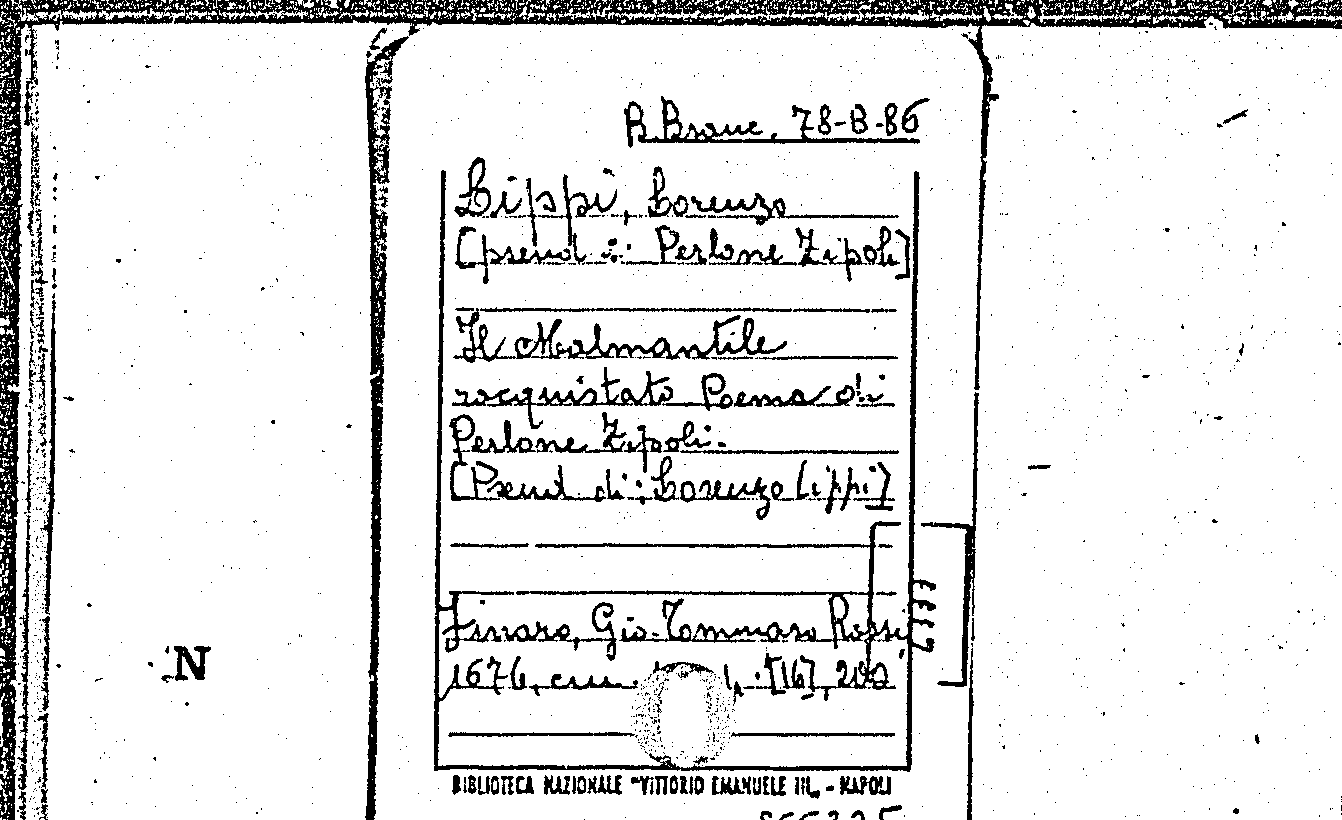 B. Branc. 78-B-86
Lippi, Lorenzo
[pseud. di: Perlone Zipoli]
Il Malmantile
racquistato Poema di
Perlone Zipoli.
[Pseud. di: Lorenzo Lippi]
Finaro, Gio. Tommaso Rossi,
1676, cm. [16],
N
BIBLIOTECA NAZIONALE "VITTORIO EMANUELE III„ - NAPOLI